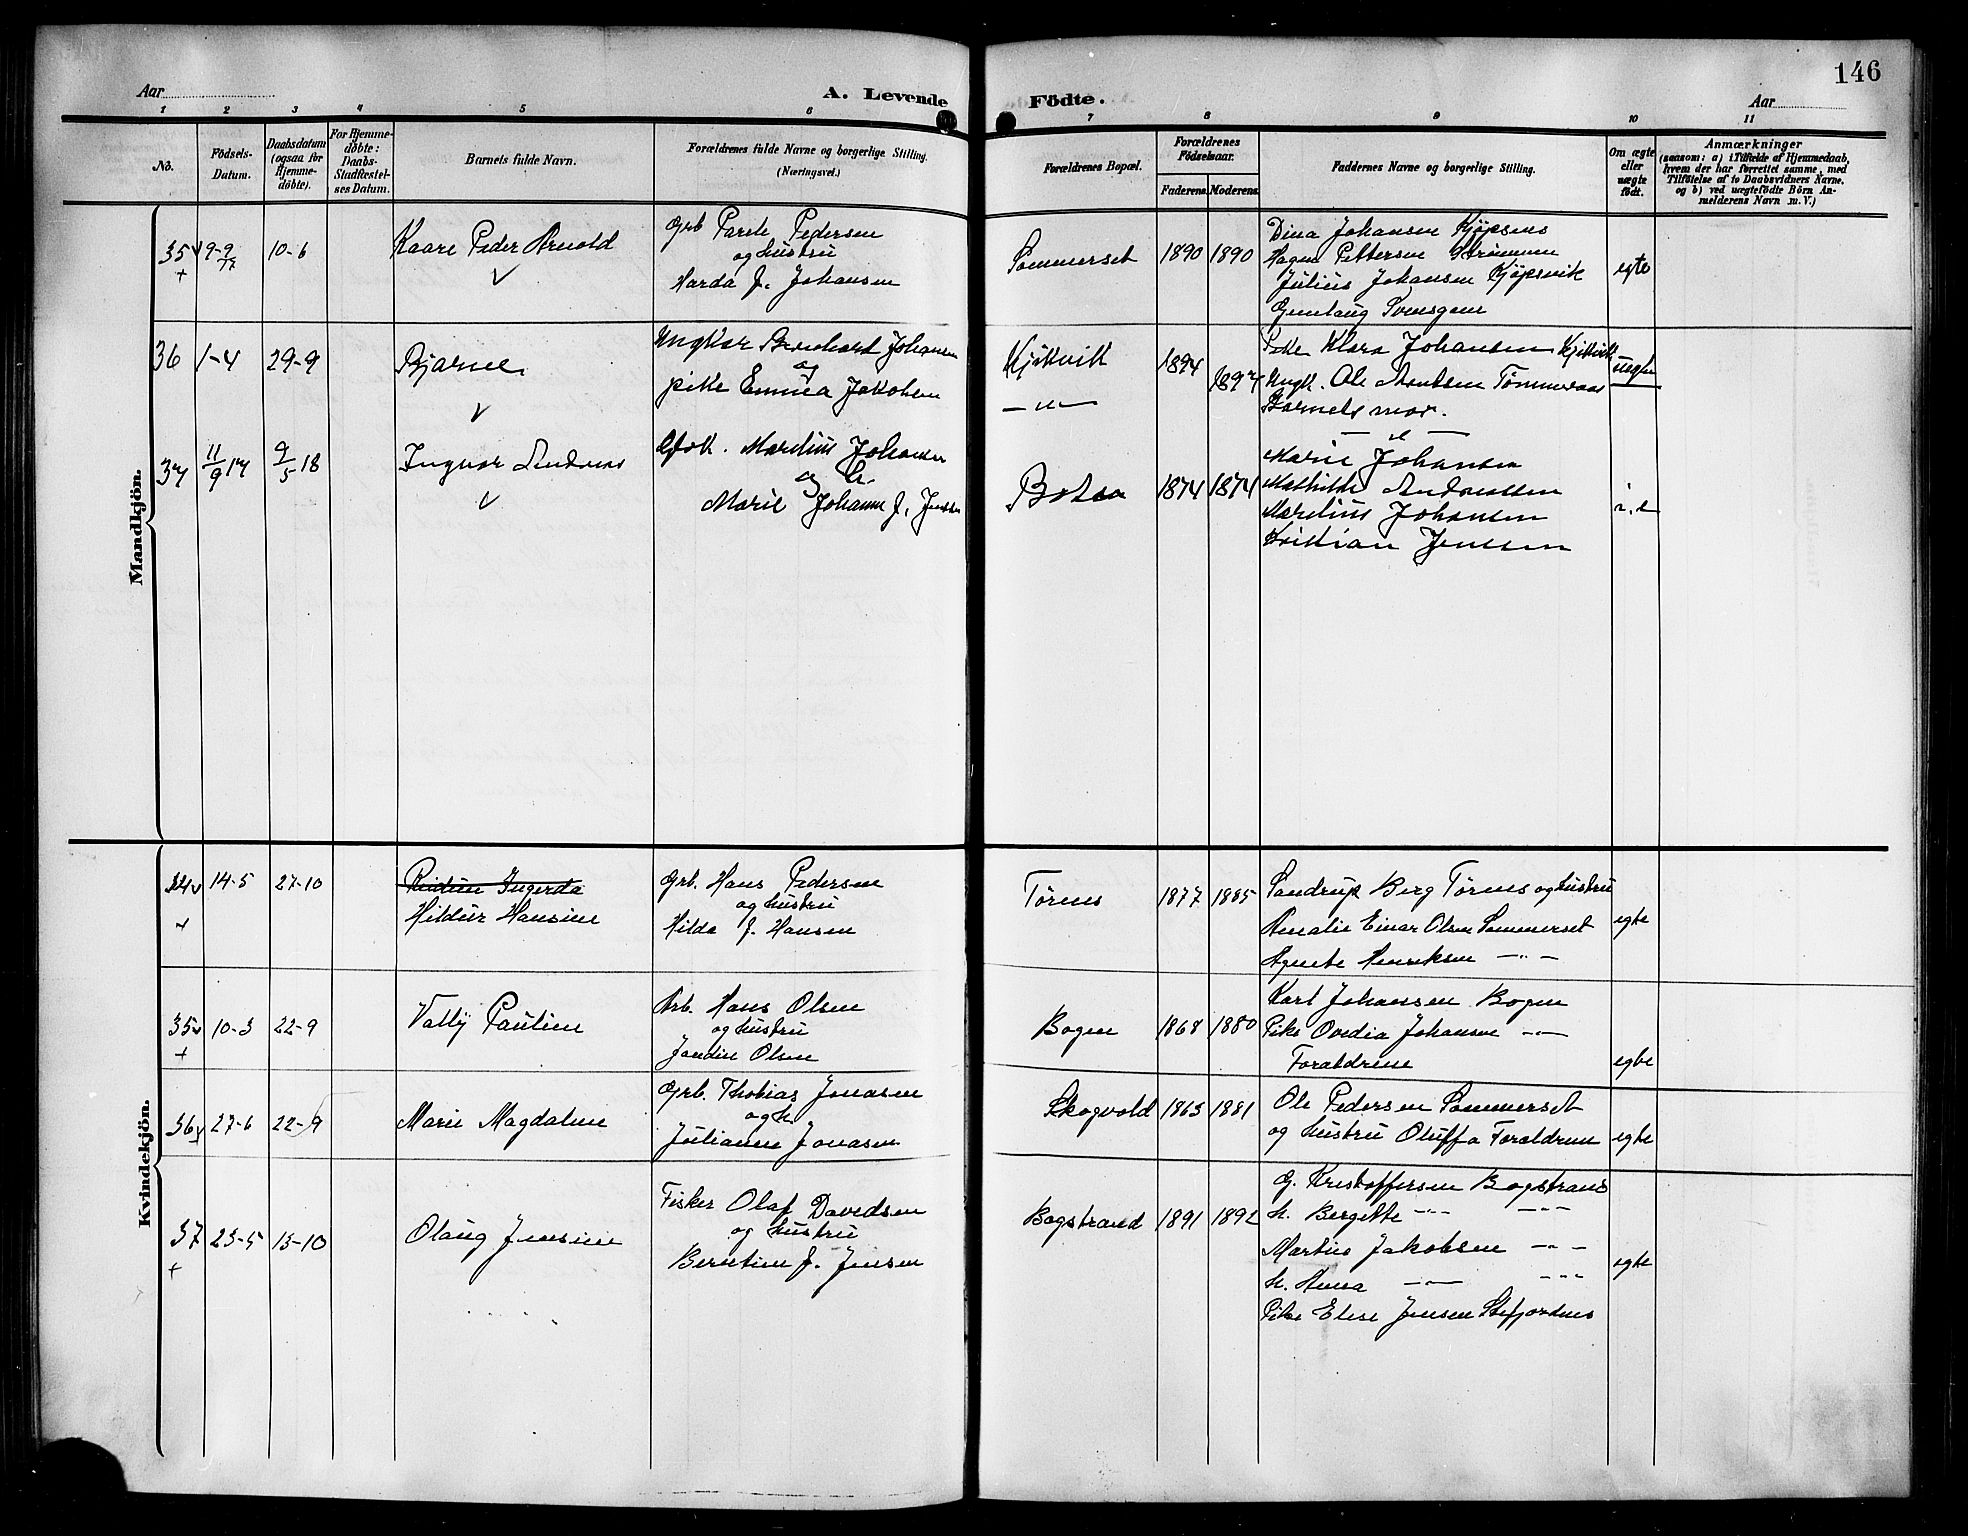 146
Aar
A. Levende
Födte.
Aar
1 2 3 4 5 6 7 8 9 10 11
No.
Födsels-
Datum.
Daabsdatum
(ogsaa for
Hjemme-
döbte).
For Hjemme-
döbte:
Daabs-
Stadfæstel-
ses Datum.
Barnets fulde Navn.
Forældrenes fulde Navne og borgerlige Stilling.
(Næringsvei.)
Forældrenes Bopæl.
Forældrenes
Födselsaar.
Faderens. Moderens.
Faddernes Navne og borgerlige Stilling.
Om ægte
eller
uægte
födt.
Anmærkninger
(saasom: a) i Tilfælde af Hjemmedaab,
hvem der har forrettet samme, med
Tilföielse af to Daabsvidners Navne,
og b) ved uægtefödte Börn An-
melderens Navn m. V.)
Mandkjön.
35 9-9/17 10-6 Kaare Peder Arnold
Pedersen
og hustru
Harda J. Johansen
Sommerset 1890 1890
Dina Johansen Kjøpsnes
Pettersen Strømmen
Julius Johansen Kjøpsvik
egte
36 1-4 29-9 Bjarne
Ungkar Bernhard Johansen
og
pike Emma Jakobsen
1894 1897
Pike Klara Johansen
Ungk. Ole
Barnets mor.
uegte
37 11/9 17 9/5 18 Ingvar Andreas
Marelius Johansen
og h.
Marie Johanne J. Jensen
1874 1874
Marie Johansen
Mathilde Andreassen
Marelius Johansen
Kristian Jensen
Kvindekjön.
34 14-5 27-10 Ingerda
Hildur Hansine
Grb. Hans Pedersen
og hustru
Hilda J. Hansen
Tørnes 1877 1885
Sandrup Berg Tørnes og hustru
Amalie Einar Olsen Sommerset
Agnete Henriksen —„—
egte
35 10-3 22-9 Vally Pauline
Arb. Hans Olsen
og hustru
Jandine Olsen
Bogen 1868 1880
Karl Johansen Bogen
Pike Ovedia Johansen —„—
Foræeldrene
egte
36 27-6 22-9 Marie Magdalene
Grb. Thobias Jonasen
og h.
Julianne Jonasen
Skogvold 1863 1881
Ole Pedersen Sommerset
og hustru Oluffa Forældrene
egte
37 23-5 13-10 Olaug Jensine
Fisker Olaf Davidsen
og hustru
Berntine J. Jensen
Bogstrand 1891 1892
G. Kristoffersen Bogstrand
h. Bergitte —„— —„—
Martin Jakobsen —„—
h. Anna —„— —„—
Pike Elise Jensen Stefjordnes
egte